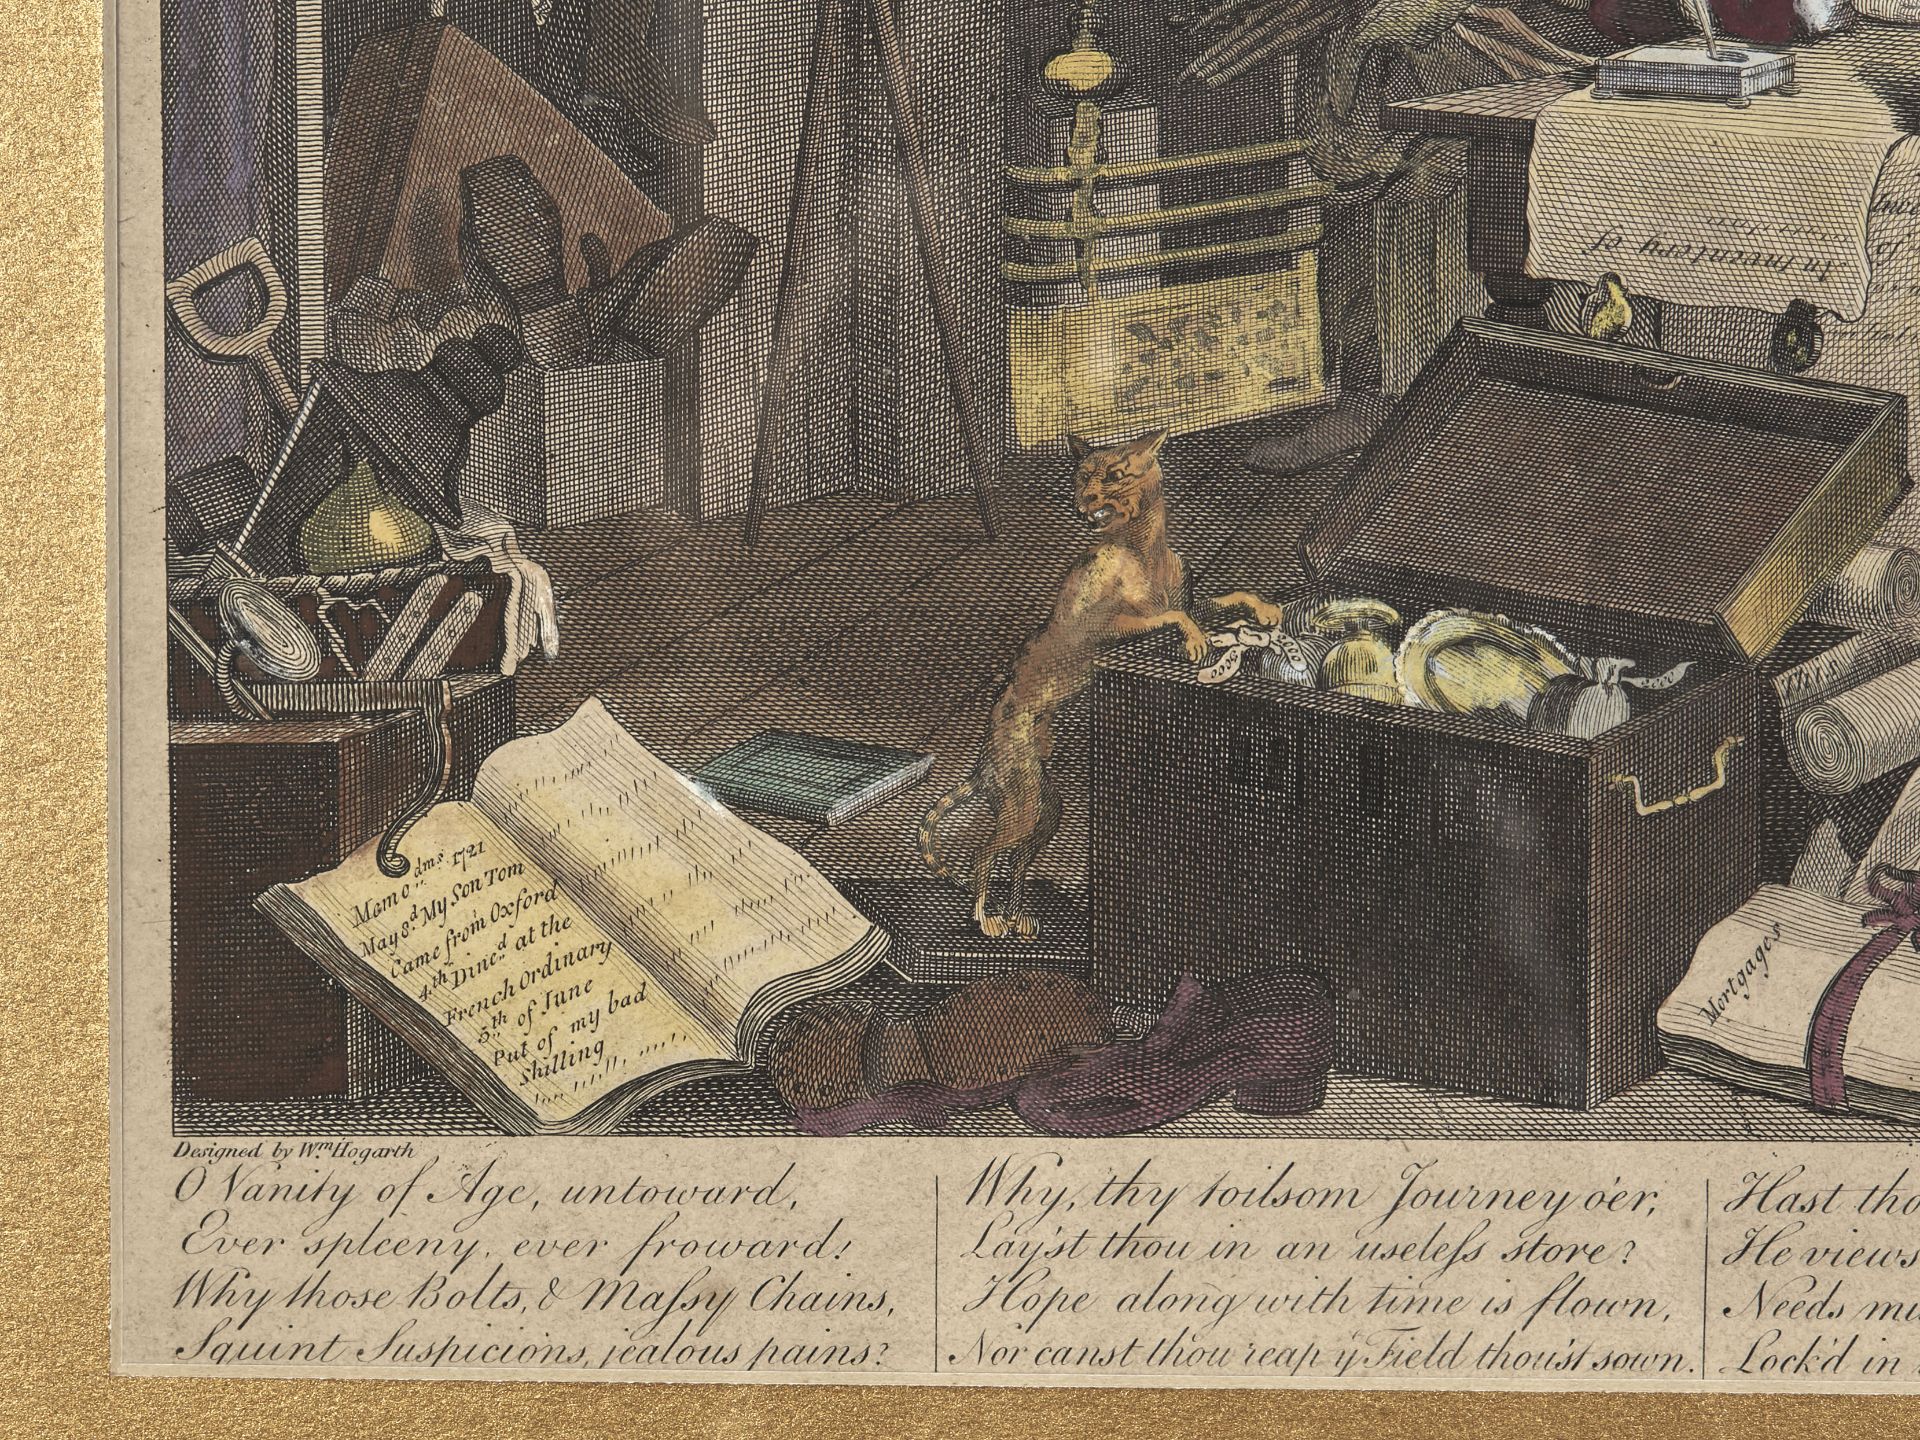 An Inventory of
3000
2000
Memo.dms 1721
May 8.d My Son Tom
Came from Oxford
4.th Dine.d at the
French Ordinary
5.th of June
Put of my bad
Shilling
Mortgages
Designed by W.m Hogarth
O Vanity of Age, untoward,
Ever spleeny, ever froward!
Why those Bolts, & Maſsy Chains,
Squint Suspicions, jealous pains?
Why, thy toilsom Journey o'er,
Lay'st thou in an useleſs store?
Hope along with time is flown,
Nor canst thou reap y.e Field thou'st sown.
Hast tho
He views
Needs mu
Lock'd in